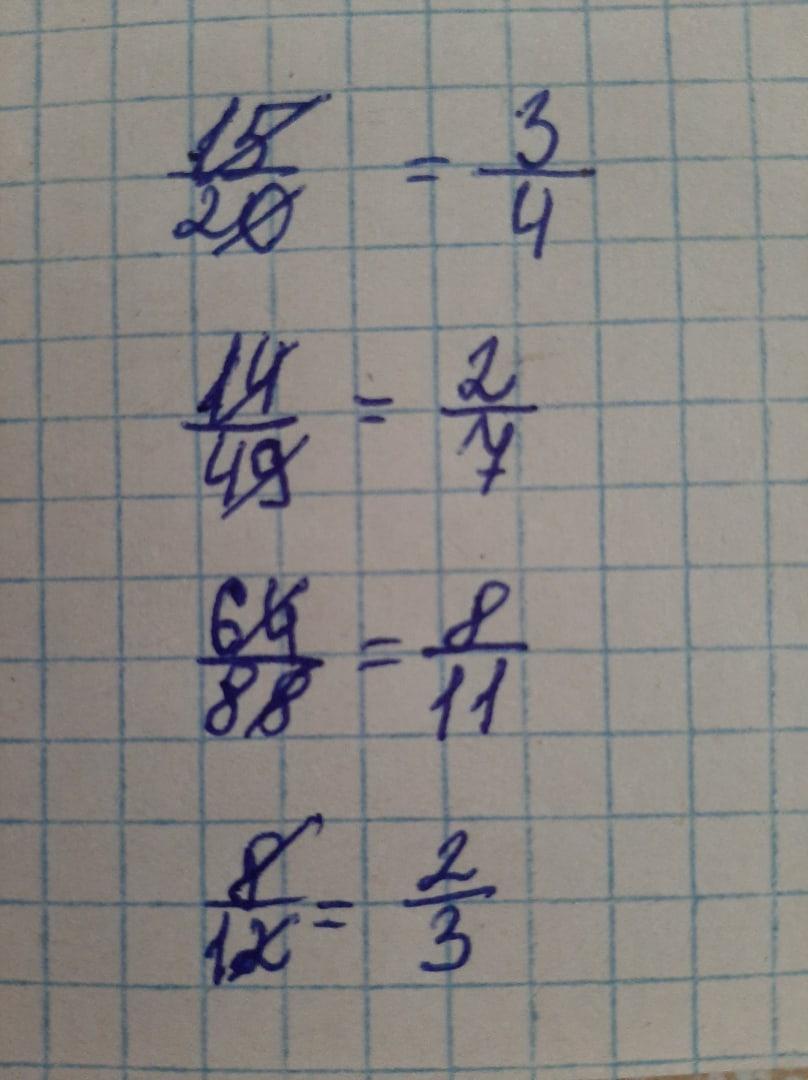 15/20 = 3/4
14/49 = 2/7
64/88 = 8/11
8/12 = 2/3